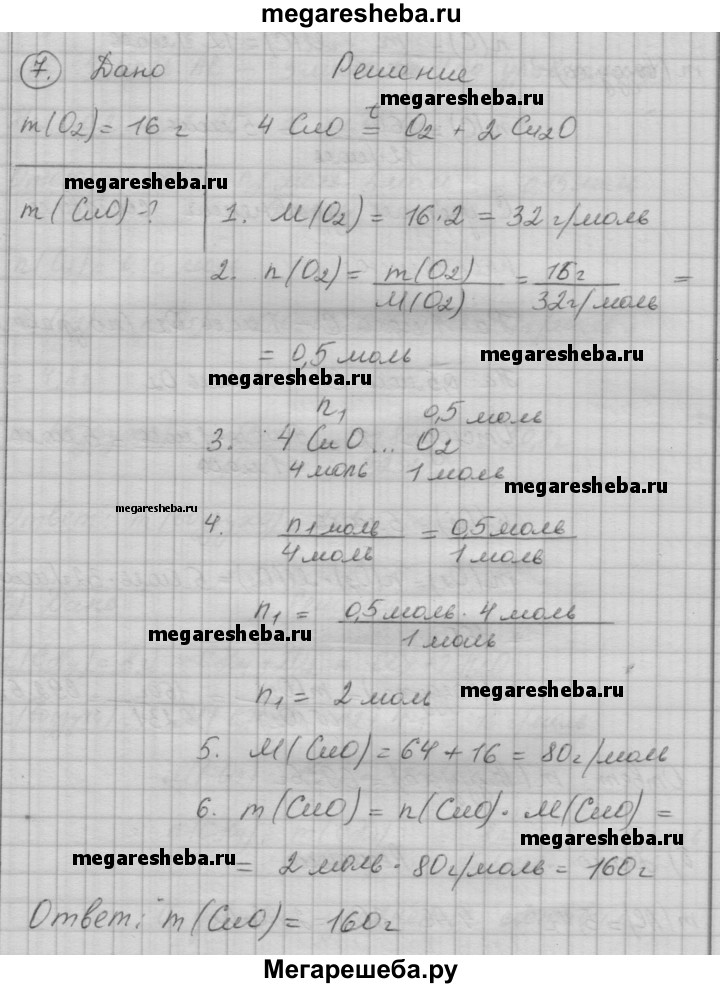 megaresheba.ru
7. Дано Решение
megaresheba.ru
m(O2) = 16 г 4 CuO t= O2 + 2 Cu2O
megaresheba.ru
m(CuO)-? 1. M(O2) = 16·2 = 32 г/моль
2. n(O2) = m(O2)/M(O2) = 16г/32г/моль =
= 0,5 моль megaresheba.ru
megaresheba.ru
n1 0,5 моль
3. 4 CuO ... O2
4 моль 1 моль
megaresheba.ru
megaresheba.ru
4. n1 моль/4 моль = 0,5 моль/1 моль
n1 = 0,5 моль · 4 моль/1 моль
megaresheba.ru
n1 = 2 моль megaresheba.ru
5. M(CuO) = 64 + 16 = 80 г/моль
6. m(CuO) = n(CuO) · M(CuO) =
megaresheba.ru
megaresheba.ru
= 2 моль · 80 г/моль = 160 г
Ответ: m(CuO) = 160 г
Мегарешеба.ру